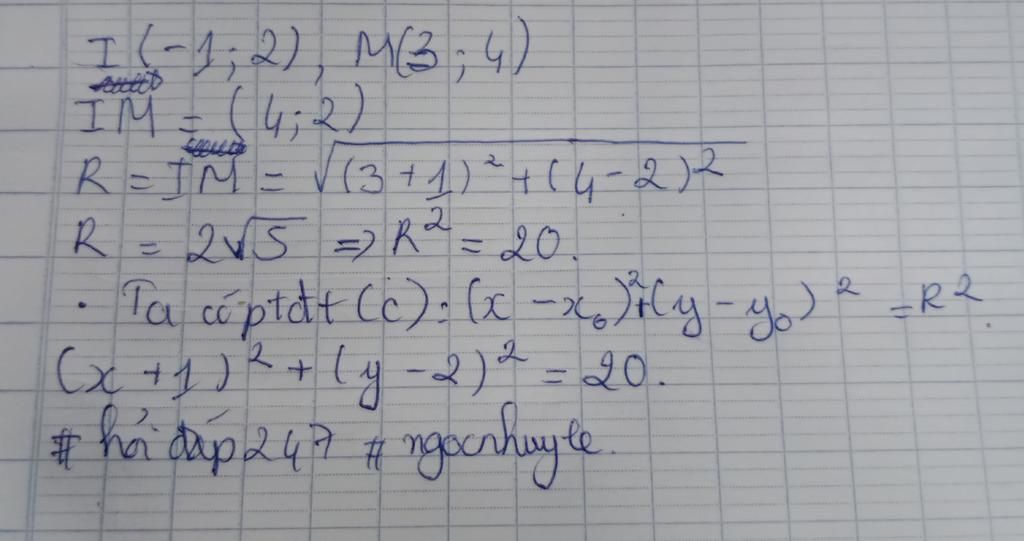 I(-1; 2), M(3; 4)
IM = (4; 2)
R = IM = √(3+1)² + (4-2)²
R = 2√5 => R² = 20.
. Ta có ptđt (c): (x - x₀)² + (y - y₀)² = R².
(x + 1)² + (y - 2)² = 20.
# hỏi đáp 247 # ngocnhuyle.